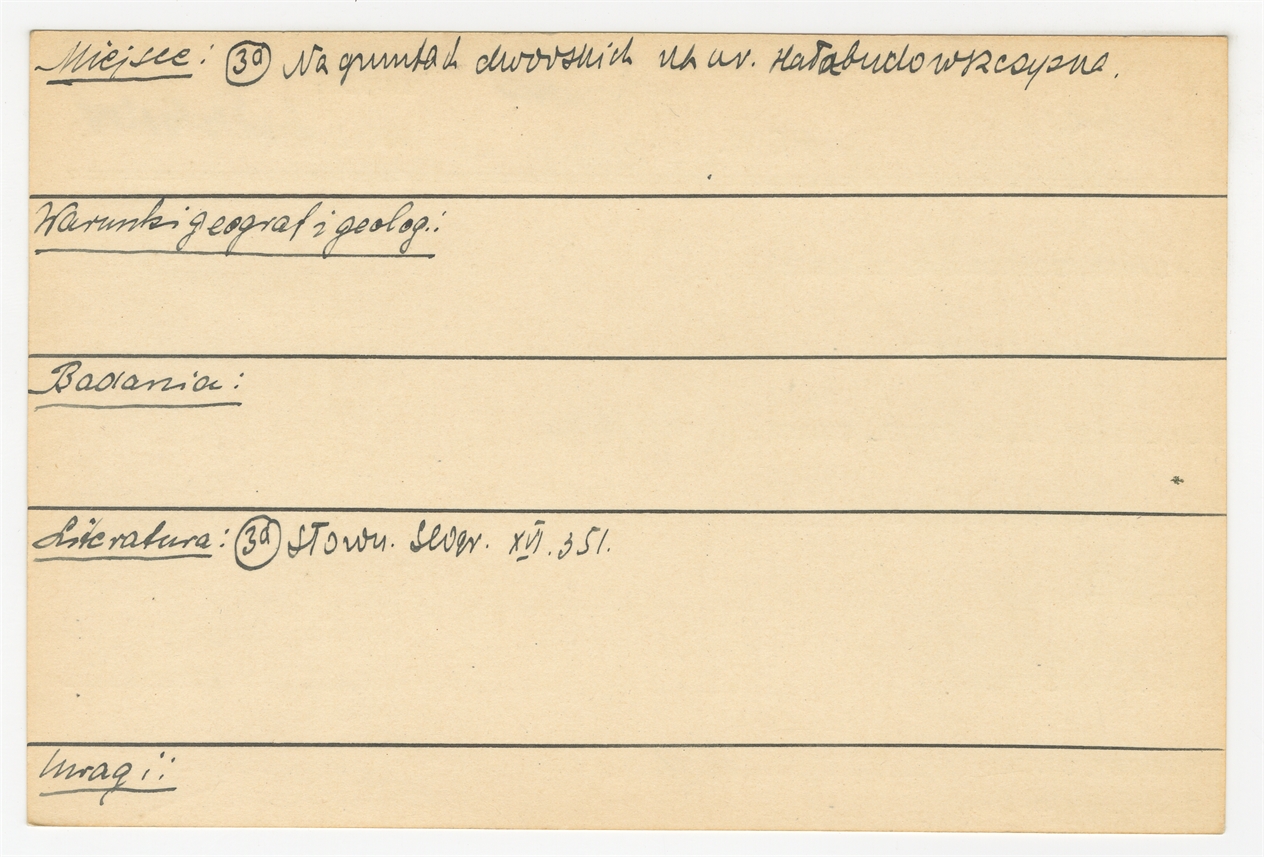 Miejsce: 3a Na gruntach dworskich na ur. Hałabudowszczyzna.
Warunki geograf i geolog.:
Badania:
Literatura: 3a Słown. Geogr. XVI. 351.
Uwagi: